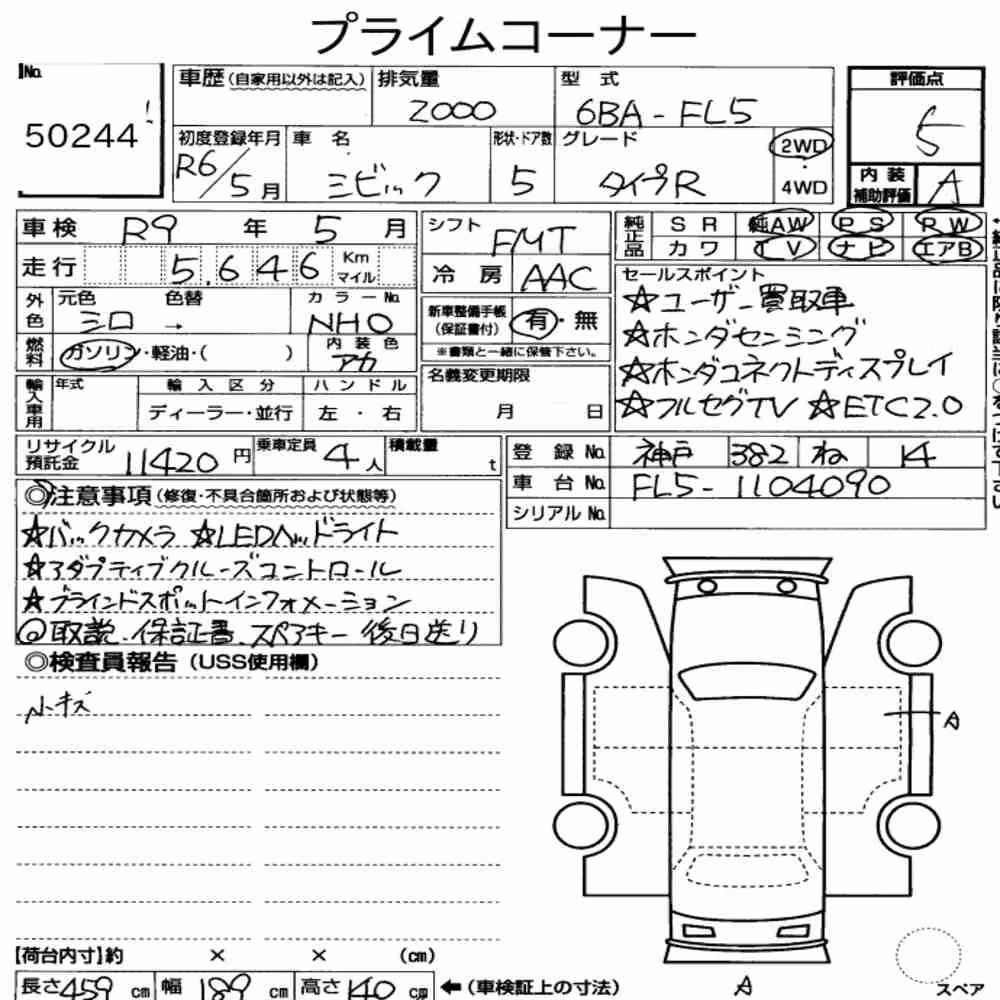 プライムコーナー
No.
50244
車歴(自家用以外は記入) 排気量 型式
2000 6BA-FL5
初度登録年月 車名 形状・ドア数 グレード 2WD
R6/5月 シビック 5 タイプR 4WD
評価点
5
内装補助評価 A
車検 R9年5月
走行 5,646 Km マイル
外色 元色 色替 カラーNo.
シロ → NHO
燃料 ガソリン・軽油・( ) 内装色 アカ
輸入車用 年式 輸入区分 ハンドル
ディーラー・並行 左・右
シフト FMT
冷房 AAC
新車整備手帳(保証書付) 有・無
※書類と一緒に保管下さい。
名義変更期限
月 日
純正品 SR 純AW PS PW
カワ TV ナビ エアB
セールスポイント
☆ユーザー買取車
☆ホンダセンシング
☆ホンダコネクトディスプレイ
☆フルセグTV ☆ETC2.0
リサイクル預託金 11420円 乗車定員 4人 積載量 t
登録No. 神戸 382 ね 14
車台No. FL5-1104090
シリアルNo.
◎注意事項(修復・不具合箇所および状態等)
☆バックカメラ ☆LEDヘッドライト
☆アダプティブクルーズコントロール
☆ブラインドスポットインフォメーション
◎取説、保証書、スペアキー後日送り
◎検査員報告(USS使用欄)
小キズ
A
【荷台内寸】約 × × (cm)
長さ459cm 幅189cm 高さ140cm ←(車検証上の寸法)
A
スペア